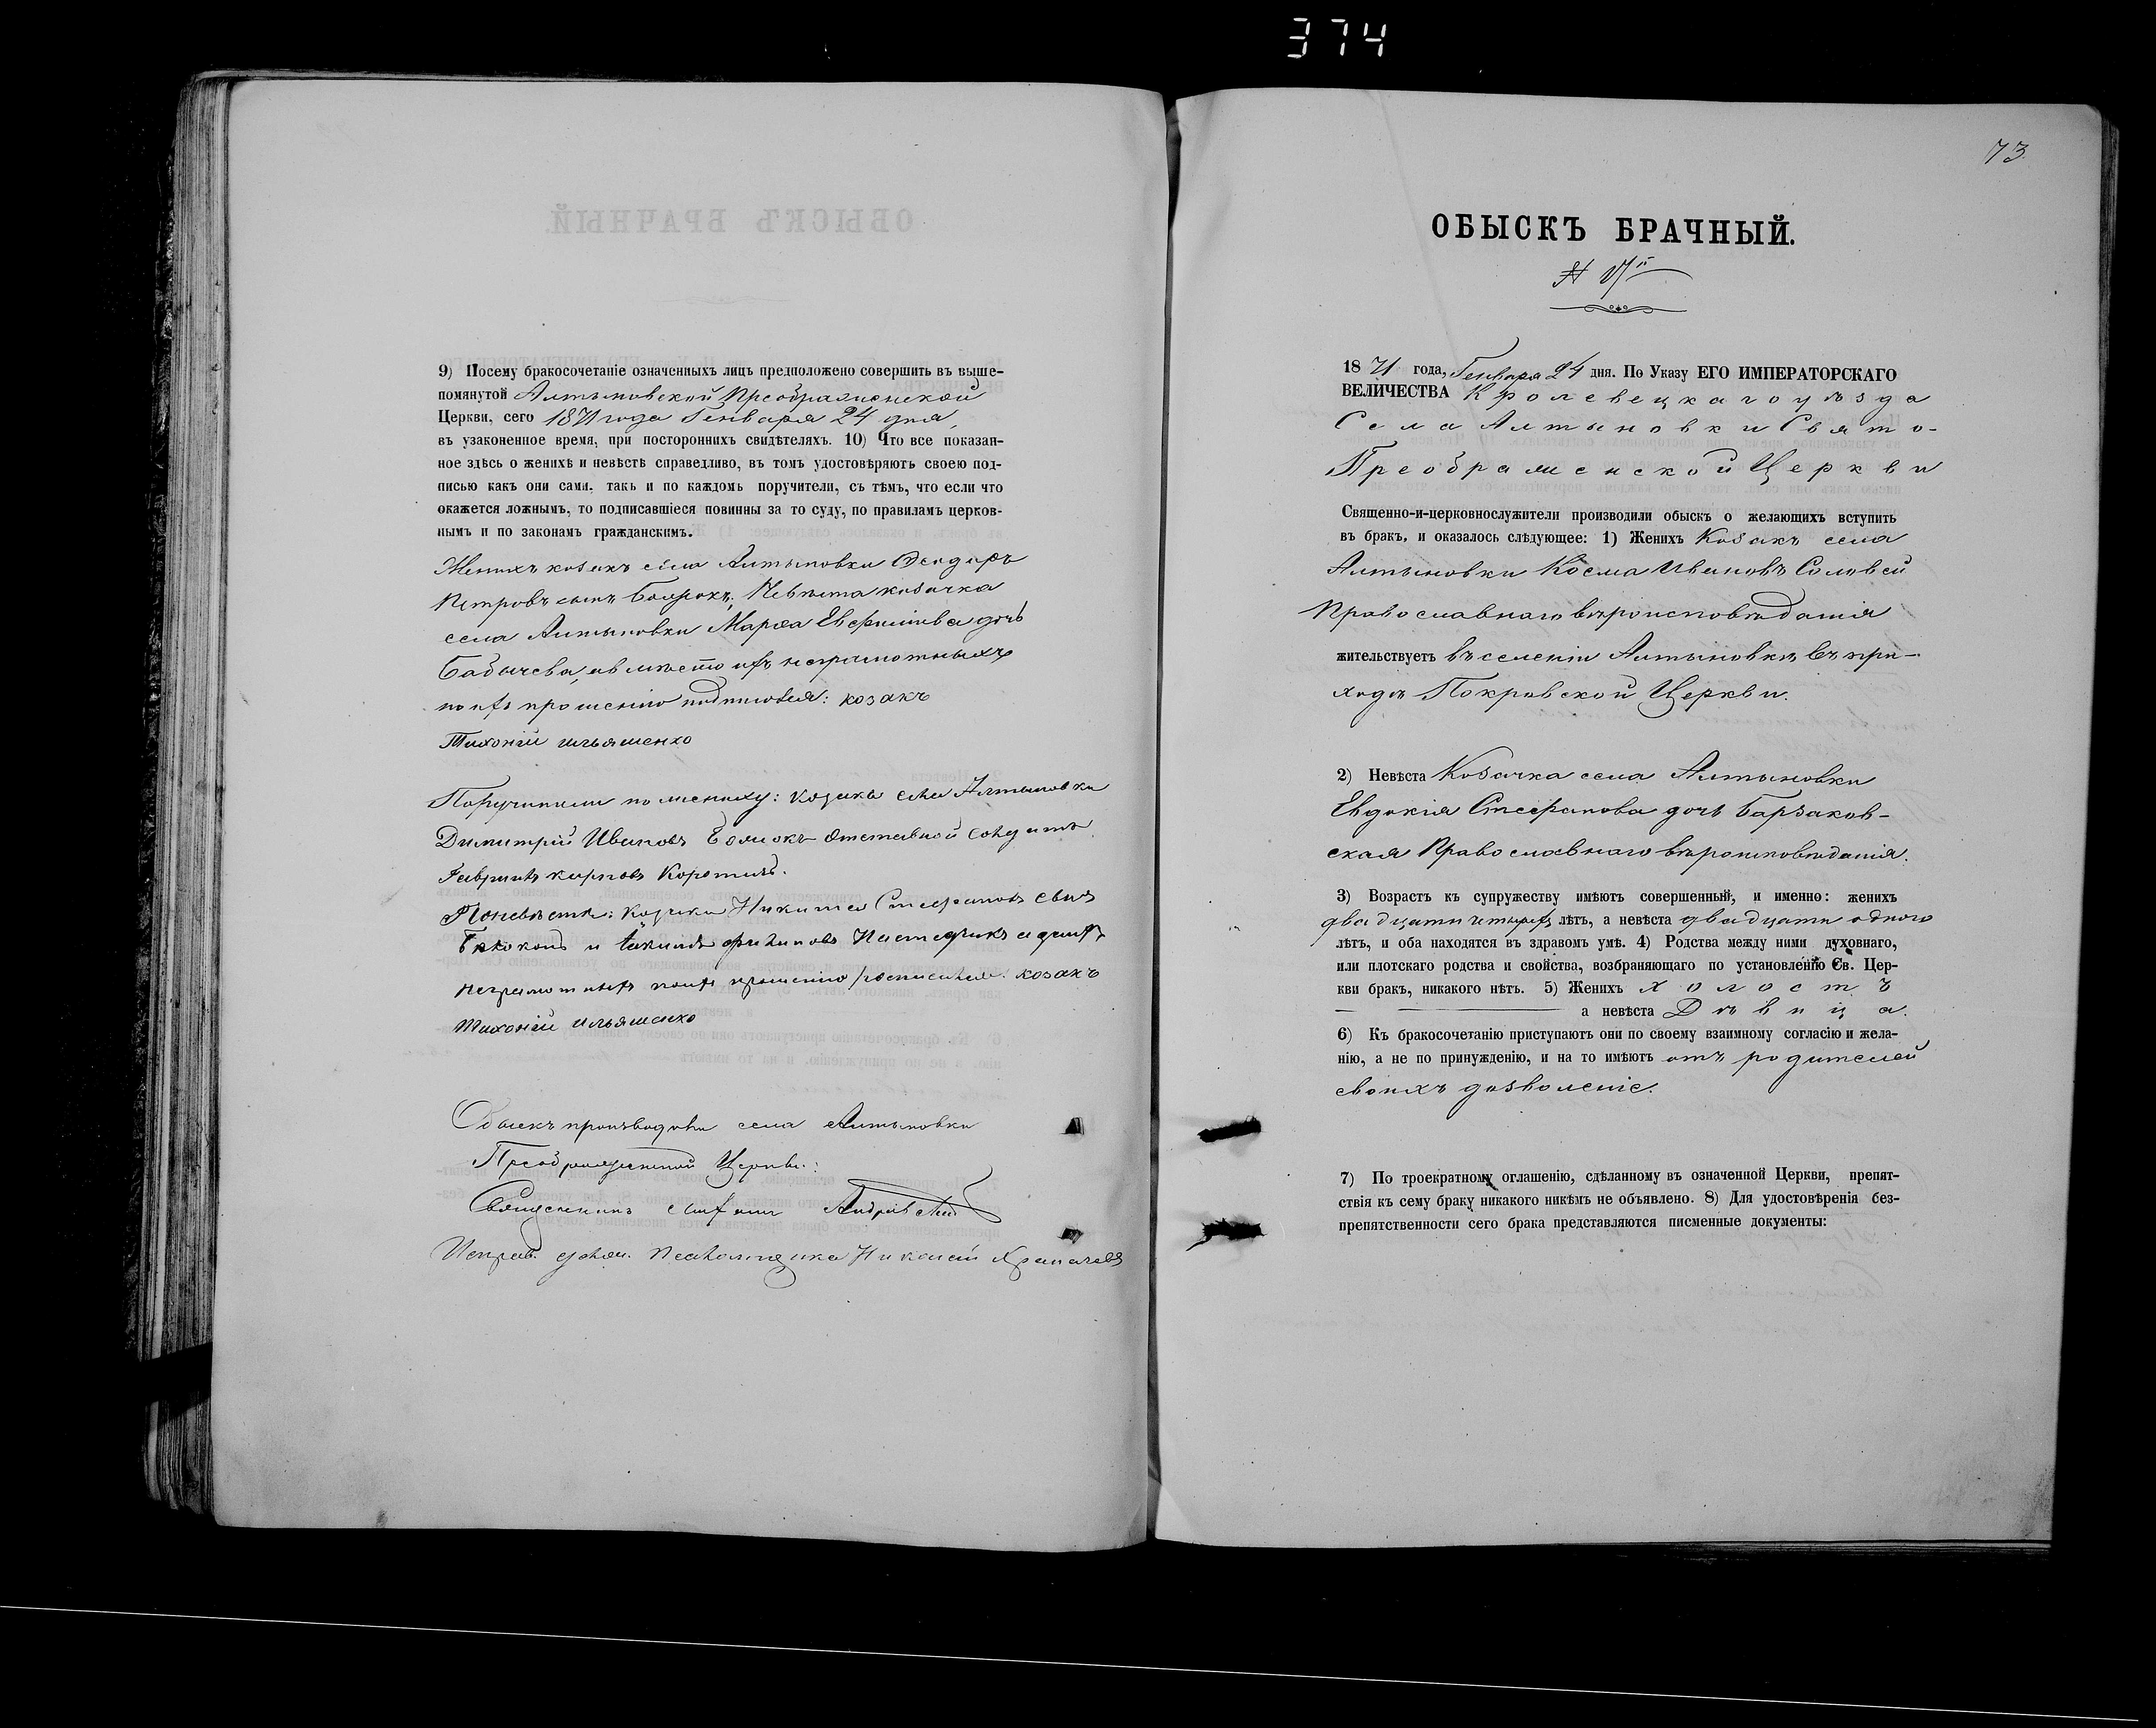 374
9) Посему бракосочетаніе означенныхъ лицъ предположено совершить въ выше-
помянутой Алтыновской Преображенской
Церкви, сего 1871 года Генваря 24 дня,
въ узаконенное время, при постороннихъ свидѣтеляхъ. 10) Что все показан-
ное здѣсь о женихѣ и невѣстѣ справедливо, въ томъ удостовѣряютъ своею под-
писью какъ они сами, такъ и по каждомъ поручители, съ тѣмъ, что если что
окажется ложнымъ, то подписавшіеся повинны за то суду, по правиламъ церков-
нымъ и по законамъ гражданскимъ.
Женихъ козакъ села Алтыновки Ѳеодоръ
Петровъ сынъ Невѣста козачка
села Алтыновки Марѳа Евфимова дочь
Бабичева, а вмѣсто ихъ неграмотныхъ
по ихъ прошенію подписался: козакъ
Тихоній ильяшенко
Поручители по жениху: козаки села Алтыновки
Димитрій Ивановъ отставной солдатъ
Гавріилъ карповъ
По невѣстѣ: козаки Никита Стефановъ сынъ
и филиповъ а за нихъ
неграмотныхъ по ихъ прошенію росписался козакъ
тихоній ильяшенко
Обыскъ производили села Алтыновки
Преображенской Церкви:
Священникъ
Исправ. долж. псаломщика Николай
73.
ОБЫСКЪ БРАЧНЫЙ.
1871 года, Генваря 24 дня. По Указу ЕГО ИМПЕРАТОРСКАГО
ВЕЛИЧЕСТВА Кролевецкаго уѣзда
Села Алтыновки Свято-
Преображенской Церкви
Священно-и-церковнослужители производили обыскъ о желающихъ вступить
въ бракъ, и оказалось слѣдующее: 1) Женихъ Козакъ села
Алтыновки Косма Ивановъ Соловей
Православнаго вѣроисповѣданія
жительствуетъ въ селеніи Алтыновкѣ, въ при-
ходѣ Покровской Церкви.
2) Невѣста Козачка села Алтыновки
Евдокія Стефанова дочь Барзаков-
ская Православнаго вѣроисповѣданія.
3) Возрастъ къ супружеству имѣютъ совершенный, и именно: женихъ
двадцати четырехъ лѣтъ, а невѣста двадцати одного
лѣтъ, и оба находятся въ здравомъ умѣ. 4) Родства между ними духовнаго,
или плотскаго родства и свойства, возбраняющаго по установленію Св. Цер-
кви бракъ, никакого нѣтъ. 5) Женихъ холостъ
а невѣста Дѣвица.
6) Къ бракосочетанію приступаютъ они по своему взаимному согласію и жела-
нію, а не по принужденію, и на то имѣютъ отъ родителей
своихъ дозволеніе.
7) По троекратному оглашенію, сдѣланному въ означенной Церкви, препят-
ствія къ сему браку никакого никѣмъ не объявлено. 8) Для удостовѣренія без-
препятственности сего брака представляются писменные документы: